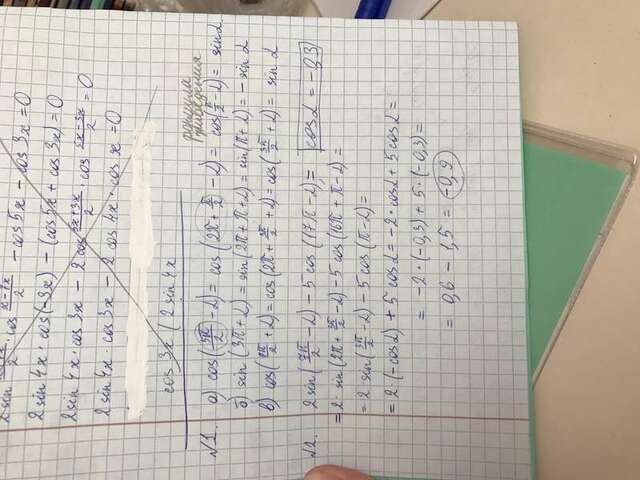 2 sin · cos x-7x/2 - cos 5x - cos 3x = 0
2 sin 4x · cos(-3x) - (cos 5x + cos 3x) = 0
2 sin 4x · cos 3x - 2 cos 5x+3x/2 · cos 5x-3x/2 = 0
2 sin 4x · cos 3x - 2 cos 4x · cos x = 0
cos 3x (2 sin 4x
формула приведения
√1. а) cos(5π/2 - α) = cos(2π + π/2 - α) = cos(π/2 - α) = sin α
б) sin(3π + α) = sin(2π + π + α) = sin(π + α) = - sin α
в) cos(7π/2 + α) = cos(2π + 3π/2 + α) = cos(3π/2 + α) = sin α
√2. 2 sin(7π/2 - α) - 5 cos(17π - α) = cos α = -0,3
= 2 · sin(2π + 3π/2 - α) - 5 cos(16π + π - α) =
= 2 sin(3π/2 - α) - 5 cos(π - α) =
= 2 (-cos α) + 5 cos α = -2 · cos α + 5 cos α =
= -2 · (-0,3) + 5 · (-0,3) =
= 0,6 - 1,5 = -0,9